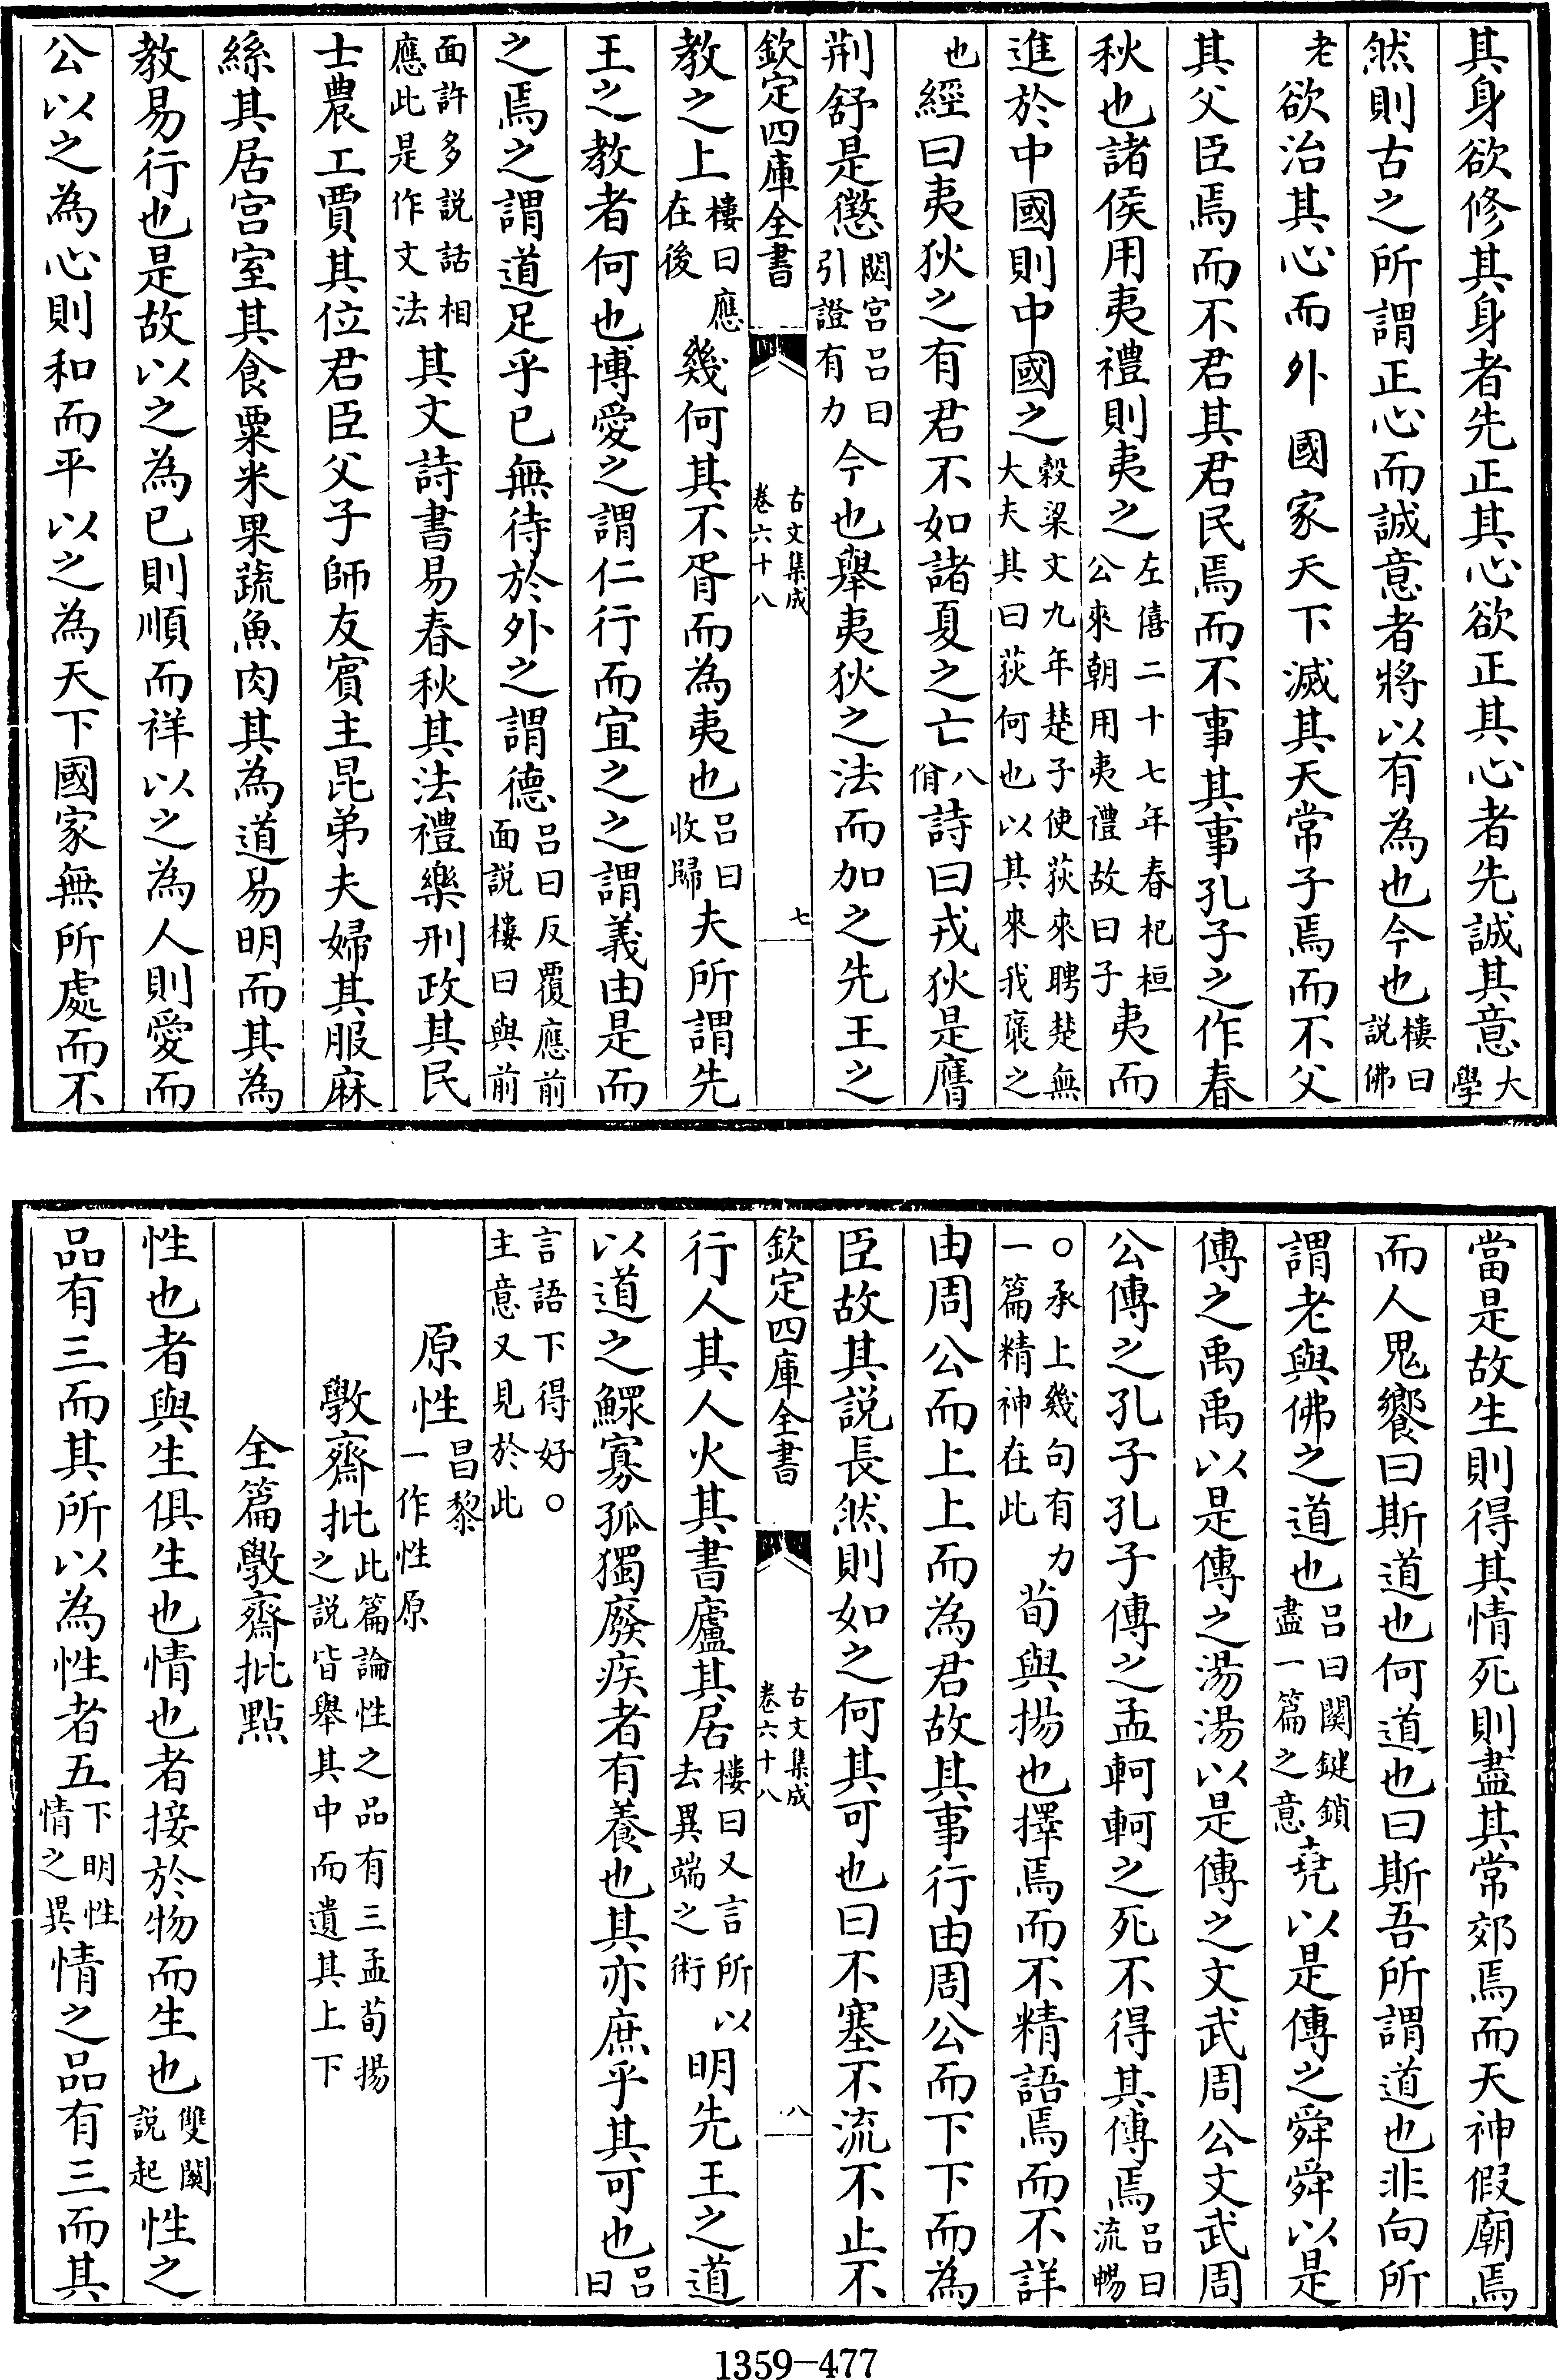 其身欲修其身者先正其心欲正其心者先誠其意大學
然則古之所謂正心而誠意者將以有為也今也樓曰說佛
老欲治其心而外國家天下滅其天常子焉而不父
其父臣焉而不君其君民焉而不事其事孔子之作春
秋也諸侯用夷禮則夷之左僖二十七年春杞桓公來朝用夷禮故曰子夷而
進於中國則中國之穀梁文九年楚子使荻來聘楚無大夫其曰荻何也以其來我褒之
也經曰夷狄之有君不如諸夏之亡八佾詩曰戎狄是膺
荆舒是懲閟宫吕曰引證有力今也舉夷狄之法而加之先王之
欽定四庫全書 古文集成卷六十八 七
教之上樓曰應在後幾何其不胥而為夷也吕曰收歸夫所謂先
王之教者何也博愛之謂仁行而宜之之謂義由是而
之焉之謂道足乎已無待於外之謂德吕曰反覆應前面説樓曰與前
面許多説話相應此是作文法其文詩書易春秋其法禮樂刑政其民
士農工賈其位君臣父子師友賓主昆弟夫婦其服麻
絲其居宫室其食粟米果蔬魚肉其為道易明而其為
教易行也是故以之為已則順而祥以之為人則愛而
公以之為心則和而平以之為天下國家無所處而不
當是故生則得其情死則盡其常郊焉而天神假廟焉
而人鬼饗曰斯道也何道也曰斯吾所謂道也非向所
謂老與佛之道也吕曰關鍵鎖盡一篇之意堯以是傳之舜舜以是
傳之禹禹以是傳之湯湯以是傳之文武周公文武周
公傳之孔子孔子傳之孟軻軻之死不得其傳焉吕曰流暢
○承上幾句有力一篇精神在此荀與揚也擇焉而不精語焉而不詳
由周公而上上而為君故其事行由周公而下下而為
臣故其説長然則如之何其可也曰不塞不流不止不
欽定四庫全書 古文集成卷六十八 八
行人其人火其書廬其居樓曰又言所以去異端之術明先王之道
以道之鰥寡孤獨廢疾者有養也其亦庶乎其可也吕曰
言語下得好○主意又見於此
原性昌黎一作性原
斆齋批此篇論性之品有三孟荀揚之説皆舉其中而遺其上下
全篇斆齋批點
性也者與生俱生也情也者接於物而生也雙關説起性之
品有三而其所以為性者五下明性情之異情之品有三而其
1359-477